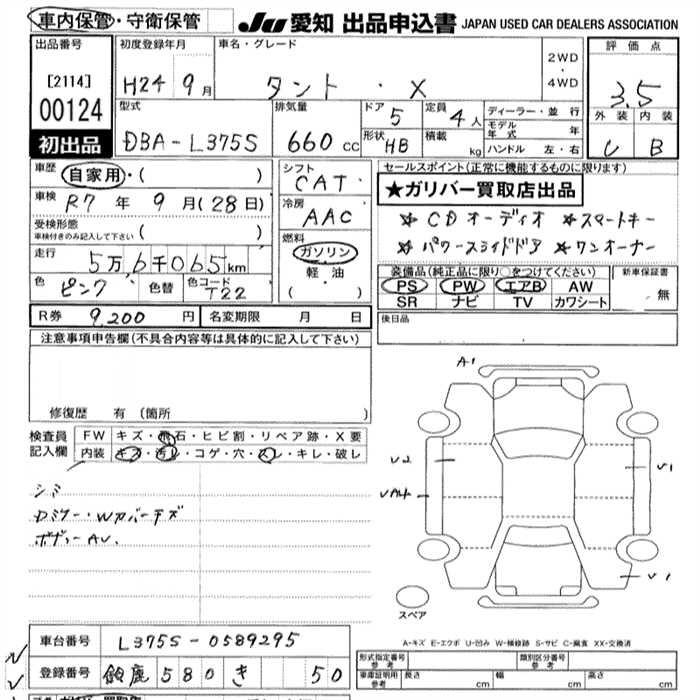 車内保管・守衛保管 JU 愛知 出品申込書 JAPAN USED CAR DEALERS ASSOCIATION
出品番号
[2114]
00124
初出品
初度登録年月
H24 9月
車名・グレード
タント ・ X
2WD
・
4WD
評価点
3.5
外装 内装
C B
型式
DBA-L375S
排気量
660 cc
ドア 5
定員 4人
形状 HB
積載 kg
ディーラー・並行
モデル年式 年
ハンドル 左・右
車歴 自家用・( )
車検 R7年 9月(28日)
受検形態
車検付きのみ記入して下さい ( )
走行 5万6千065km
色 ピンク 色替 色コード T22
シフト
CAT
冷房
AAC
燃料
ガソリン
軽油
( )
セールスポイント(正常に機能するものに限ります)
★ガリバー買取店出品
☆CDオーディオ ☆スマートキー
☆パワースライドドア ☆ワンオーナー
装備品(純正品に限り○をつけてください)
PS PW エアB AW
SR ナビ TV カワシート
新車保証書
無
R券 9,200円 名変期限 月 日
後日品
注意事項申告欄(不具合内容等は具体的に記入して下さい)
修復歴 有 (箇所 )
検査員
記入欄
FW キズ・飛石・ヒビ割・リペア跡・X要
内装 キズ・汚レ・コゲ・穴・スレ・キレ・破レ
シミ
Dミラー・Wカバーキズ
ボディーAU.
A1
U2
UA4
U1
U1
スペア
A-キズ E-エクボ U-凹み W-補修跡 S-サビ C-腐食 XX-交換済
車台番号 L375S-0589295
登録番号 鈴鹿 580 き 50
型式指定番号
参考
類別区分番号
参考
車庫証明用
参考
長さ cm 幅 cm 高さ cm